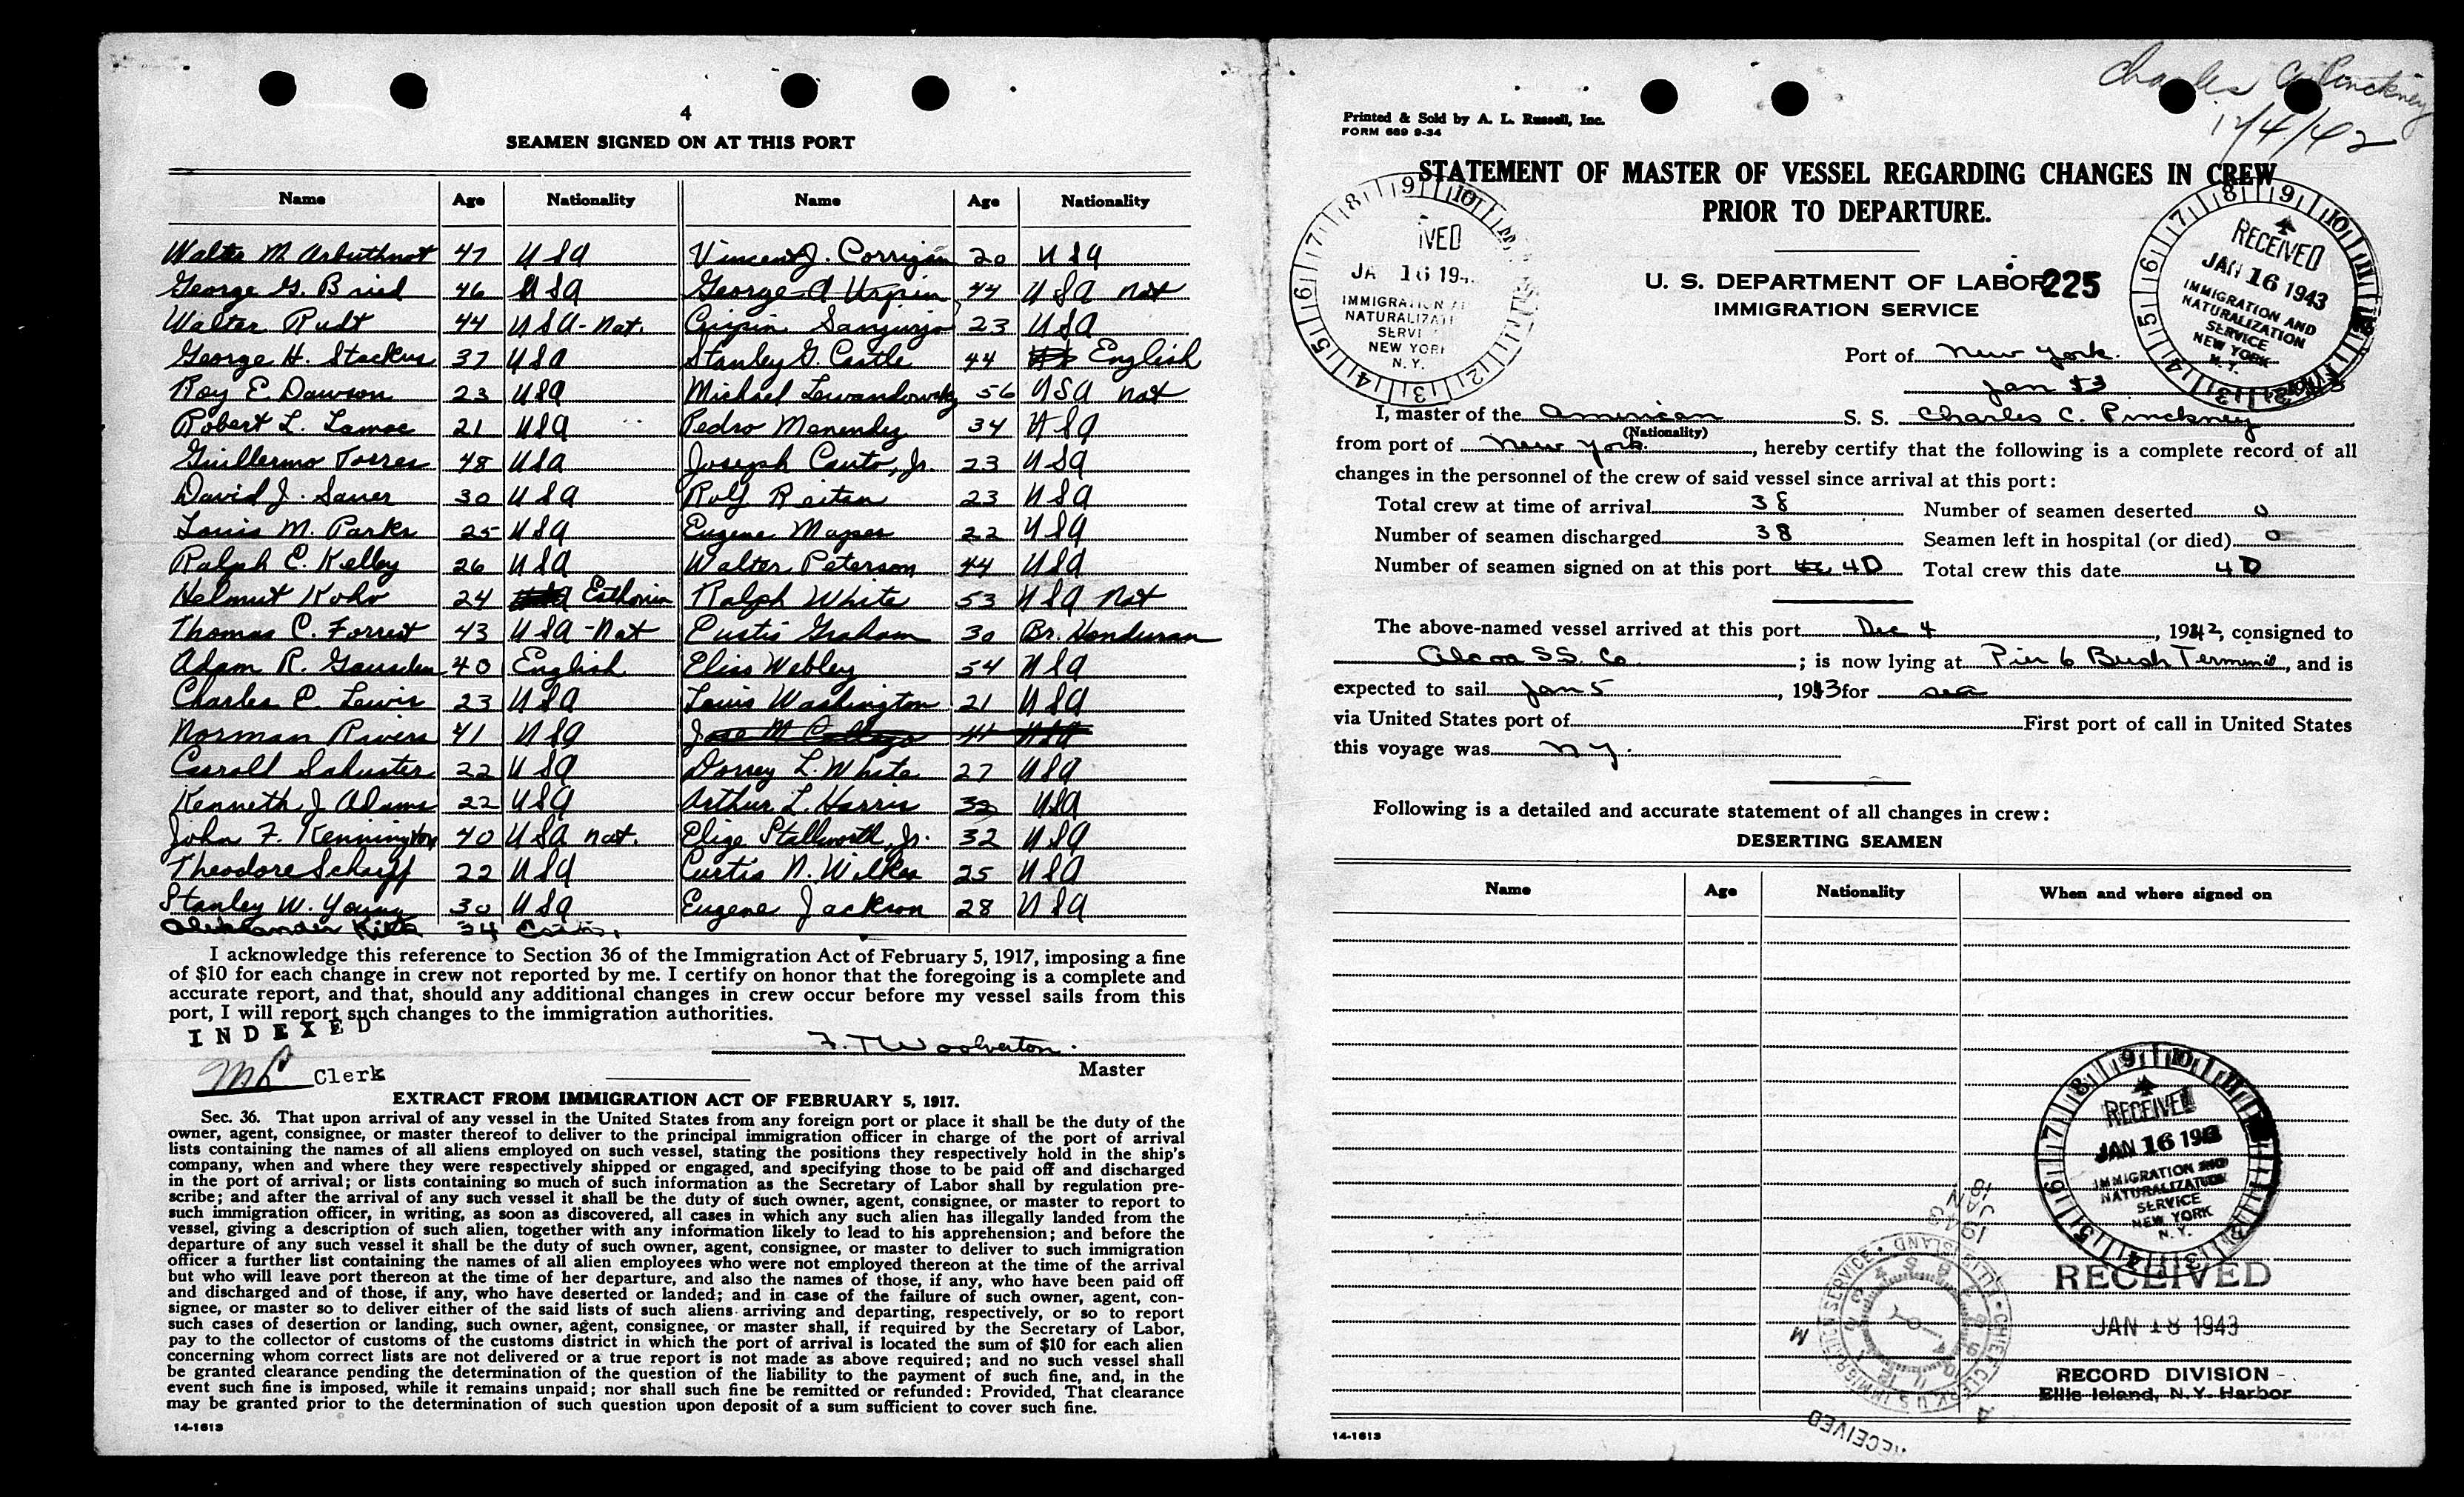 4
SEAMEN SIGNED ON AT THIS PORT
Name Age Nationality Name Age Nationality
Walter M Arbuthnot 47 USA Vincent J. Corrigan 20 USA
George G. Bried 46 USA George A 44 USA Nat
Walter Rudt 44 USA-Nat. Crispin Sanjurjo 23 USA
George H. Stackus 37 USA Stanley G. Castle 44 English
Roy E. Dawson 23 USA Michael Lewandowsky 56 USA Nat
Robert L. 21 USA Pedro Menendez 34 USA
Guillermo Torres 48 USA Joseph Canto, Jr. 23 USA
David J. Sauer 30 USA Rolf Reitan 23 USA
Louis M. Parks 25 USA Eugene 22 USA
Ralph E. Kelley 26 USA Walter Peterson 44 USA
Helmut Kohv 24 Esthonia Ralph White 53 USA Nat
Thomas C. Forrest 43 USA-Nat Curtis Graham 30 Br. Honduran
Adam R. 40 English Elias Webley 54 USA
Charles E. Lewis 23 USA Louis Washington 21 USA
Norman Rivers 41 USA Jose M Collazo 44 USA
Carroll Schuster 22 USA Dorsey L. White 27 USA
Kenneth J Adams 22 USA Arthur L. Harris 32 USA
John F. Kennington 40 USA nat. Elige Stallworth, Jr. 32 USA
Theodore Scharff 22 USA Curtis N. Wilkes 25 USA
Stanley W. Young 30 USA Eugene Jackson 28 USA
34
I acknowledge this reference to Section 36 of the Immigration Act of February 5, 1917, imposing a fine
of $10 for each change in crew not reported by me. I certify on honor that the foregoing is a complete and
accurate report, and that, should any additional changes in crew occur before my vessel sails from this
port, I will report such changes to the immigration authorities.
INDEXED
F. T Woolverton.
Clerk
Master
EXTRACT FROM IMMIGRATION ACT OF FEBRUARY 5, 1917.
Sec. 36. That upon arrival of any vessel in the United States from any foreign port or place it shall be the duty of the
owner, agent, consignee, or master thereof to deliver to the principal immigration officer in charge of the port of arrival
lists containing the names of all aliens employed on such vessel, stating the positions they respectively hold in the ship's
company, when and where they were respectively shipped or engaged, and specifying those to be paid off and discharged
in the port of arrival; or lists containing so much of such information as the Secretary of Labor shall by regulation pre-
scribe; and after the arrival of any such vessel it shall be the duty of such owner, agent, consignee, or master to report to
such immigration officer, in writing, as soon as discovered, all cases in which any such alien has illegally landed from the
vessel, giving a description of such alien, together with any information likely to lead to his apprehension; and before the
departure of any such vessel it shall be the duty of such owner, agent, consignee, or master to deliver to such immigration
officer a further list containing the names of all alien employees who were not employed thereon at the time of the arrival
but who will leave port thereon at the time of her departure, and also the names of those, if any, who have been paid off
and discharged and of those, if any, who have deserted or landed; and in case of the failure of such owner, agent, con-
signee, or master so to deliver either of the said lists of such aliens arriving and departing, respectively, or so to report
such cases of desertion or landing, such owner, agent, consignee, or master shall, if required by the Secretary of Labor,
pay to the collector of customs of the customs district in which the port of arrival is located the sum of $10 for each alien
concerning whom correct lists are not delivered or a true report is not made as above required; and no such vessel shall
be granted clearance pending the determination of the question of the liability to the payment of such fine, and, in the
event such fine is imposed, while it remains unpaid; nor shall such fine be remitted or refunded: Provided, That clearance
may be granted prior to the determination of such question upon deposit of a sum sufficient to cover such fine.
14-1613
Charles C Pinckney
12/4/42
Printed & Sold by A. L. Russell, Inc.
FORM 689 9-34
STATEMENT OF MASTER OF VESSEL REGARDING CHANGES IN CREW
PRIOR TO DEPARTURE.
U. S. DEPARTMENT OF LABOR 225
IMMIGRATION SERVICE
RECEIVED
JAN 16 1943
IMMIGRATION AND
NATURALIZATION
SERVICE
NEW YORK
N. Y.
Port of New York.
I, master of the American S. S. Charles C. Pinckney
(Nationality)
from port of New York, hereby certify that the following is a complete record of all
changes in the personnel of the crew of said vessel since arrival at this port:
Total crew at time of arrival 38 Number of seamen deserted 0
Number of seamen discharged 38 Seamen left in hospital (or died) 0
Number of seamen signed on at this port 40 Total crew this date 40
The above-named vessel arrived at this port Dec 4, 1942, consigned to
Alcoa SS. Co; is now lying at Pier 6 Bush Terminal, and is
expected to sail Jan 5, 1943 for sea
via United States port of First port of call in United States
this voyage was NY.
Following is a detailed and accurate statement of all changes in crew:
DESERTING SEAMEN
Name Age Nationality When and where signed on
RECEIVED
JAN 16 1943
IMMIGRATION AND
NATURALIZATION
SERVICE
NEW YORK
N. Y.
RECEIVED
JAN 18 1943
RECORD DIVISION
Ellis Island, N.Y. Harbor
14-1613